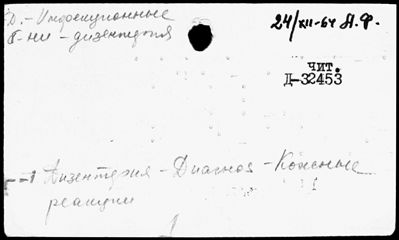 D.- Инфекционные
б-ни - дизентерия
24/XII-64 А.Ф.
чит.
Д-32453
Дизентерия - Диагноз - Кожные
реакции